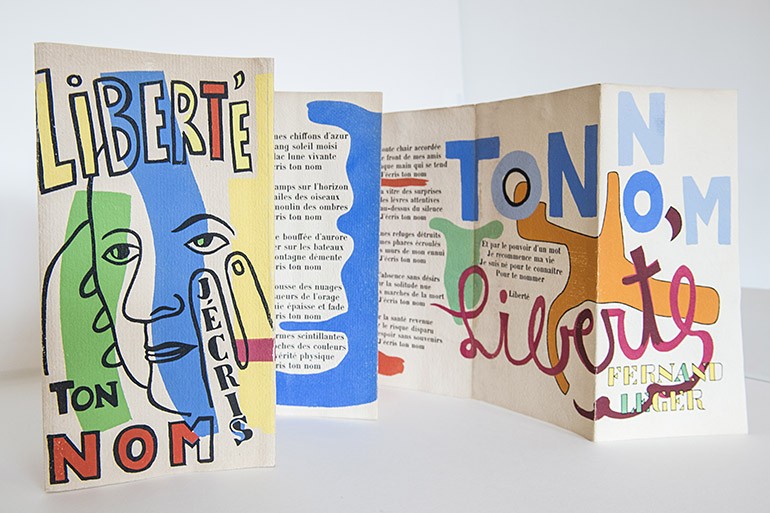 LiBERTÉ
J'ÉCRIS
TON
NOM
mes chiffons d'azur
ang soleil moisi
lac lune vivante
cris ton nom
amps sur l'horizon
ailes des oiseaux
moulin des ombres
cris ton nom
e bouffée d'aurore
er sur les bateaux
ontagne démente
cris ton nom
ousse des nuages
ueurs de l'orage
uie épaisse et fade
cris ton nom
rmes scintillantes
oches des couleurs
vérité physique
cris ton nom
oute chair accordée
e front de mes amis
que main qui se tend
J'écris ton nom
a vitre des surprises
les lèvres attentives
au-dessus du silence
J'écris ton nom
mes refuges détruits
mes phares écroulés
s murs de mon ennui
J'écris ton nom
l'absence sans désirs
r la solitude nue
s marches de la mort
J'écris ton nom
r la santé revenue
r le risque disparu
espoir sans souvenirs
J'écris ton nom
TON
NOM,
Et par le pouvoir d'un mot
Je recommence ma vie
Je suis né pour te connaître
Pour te nommer
Liberté
Liberté
FERNAND
LEGER